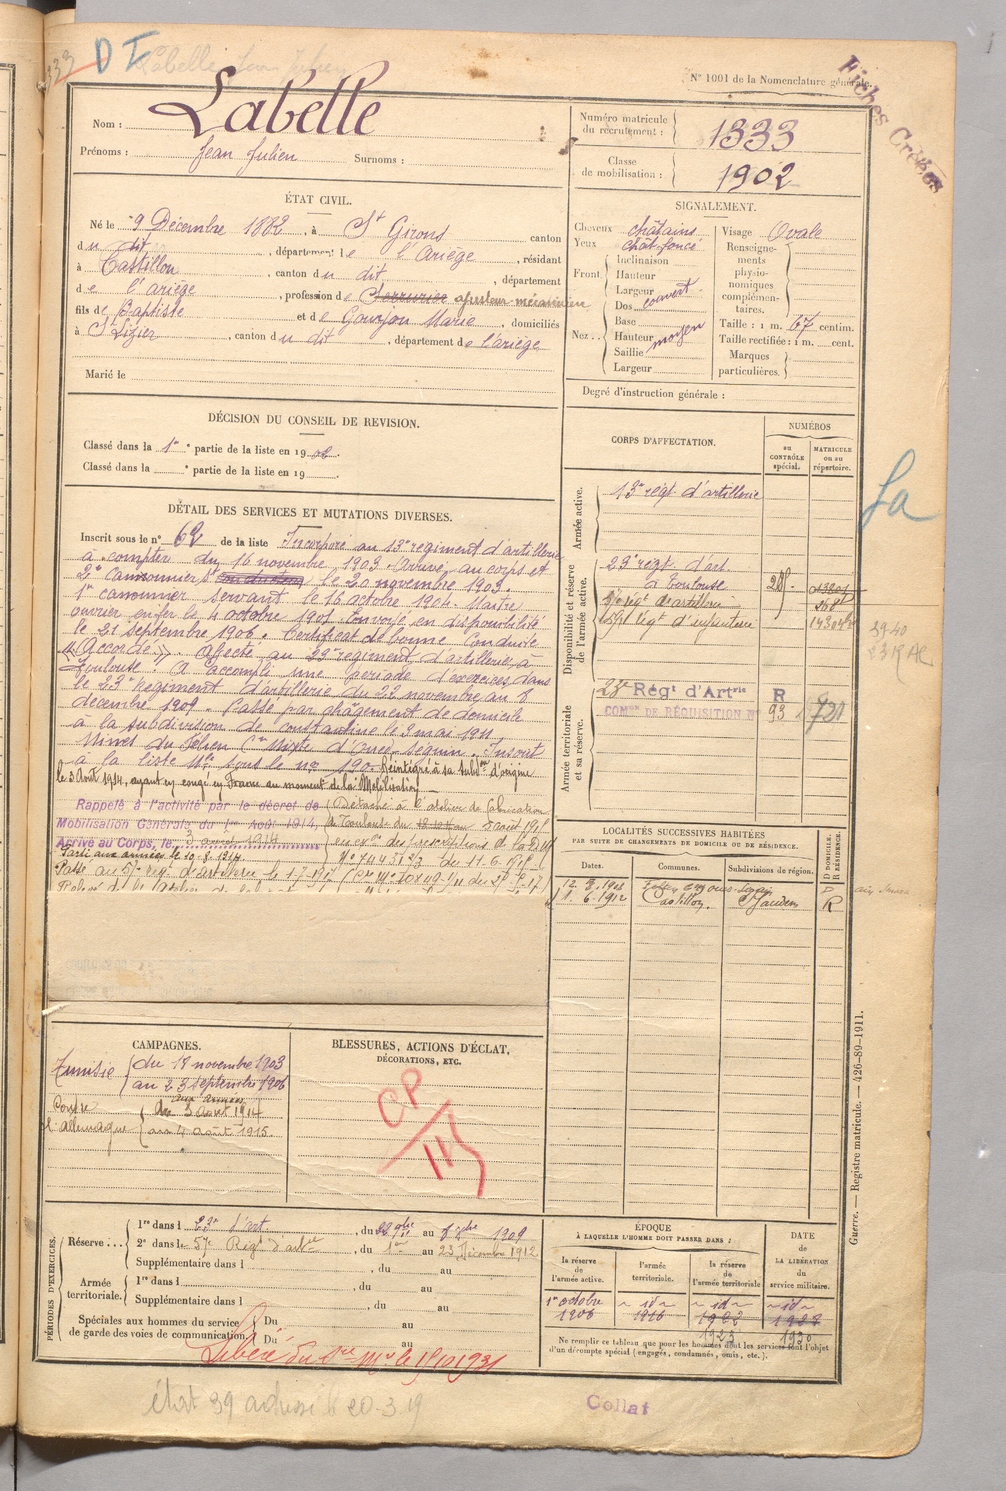 D I
Labelle Jean Julien
N° 1001 de la Nomenclature générale.
Fiches Créées
Nom : Labelle
Prénoms : Jean Julien Surnoms :
Numéro matricule du recrutement : 1333
Classe de mobilisation : 1902
ÉTAT CIVIL.
Né le 9 Décembre 1882, à St Girons canton
du dit, département de l'Ariège, résidant
à Castillon, canton du dit, département
de l'ariège, profession de Serrurier ajusteur-mécanicien
fils de Baptiste et de Gourjon Marie, domiciliés
à St Lizier, canton du dit, département de l'ariège
Marié le
SIGNALEMENT.
Cheveux châtains
Yeux chât foncé
Front. Inclinaison
Hauteur
Largeur
Nez... Dos couvert
Base
Hauteur moyen
Saillie
Largeur
Visage Ovale
Renseignements physionomiques complémentaires.
Taille : 1 m. 67 centim.
Taille rectifiée : 1 m. cent.
Marques particulières.
Degré d'instruction générale :
DÉCISION DU CONSEIL DE REVISION.
Classé dans la 1re partie de la liste en 19
Classé dans la e partie de la liste en 19
CORPS D'AFFECTATION.
NUMÉROS
au CONTRÔLE spécial.
MATRICULE ou au répertoire.
Armée active.
13e régt d'artillerie
Disponibilité et réserve de l'armée active.
23e régt d'art.
à Toulouse
57e régt d'artillerie
régt d'infanterie
39-40
23 R AC
Armée territoriale et sa réserve.
23e Régt d'Artrie R
COMon DE RÉQUISITION No 93
La
DÉTAIL DES SERVICES ET MUTATIONS DIVERSES.
Inscrit sous le n° 62 de la liste Incorporé au 13e régiment d'artillerie
à compter du 16 novembre 1903. Arrivé au corps et
2e Canonnier St le 20 novembre 1903.
1er canonnier servant le 16 octobre 1904. Maître
ouvrier en fer le 4 octobre 1905. Envoyé en disponibilité
le 21 septembre 1906. Certificat de bonne Conduite
"Accordé". Affecté au 23e régiment d'artillerie à
Toulouse. A accompli une période d'exercices dans
le 23e Régiment d'artillerie du 22 novembre au 8
décembre 1909. Passé par changement de domicile
à la subdivision de Constantine le 3 mai 1911
Mines du Félten Cne Mixte d'Oued-Seguin. Inscrit
à la liste sous le no 190. Réintégré à sa subon d'origine
le 3 Août 1914, ayant en congé en France au moment de la Mobilisation.
Rappelé à l'activité par le décret de
Mobilisation Générale du 1er Août 1914,
Arrivé au Corps, le 3 août 1914
Parti aux armées le 10.8.1914
Passé au 57e rég. d'artillerie le 1-7-1917
Détaché à l'atelier de fabrication
de Toulouse du 5 août 1915
en von des prescriptions de la D.M
LOCALITÉS SUCCESSIVES HABITÉES
PAR SUITE DE CHANGEMENTS DE DOMICILE OU DE RÉSIDENCE.
Dates. Communes. Subdivisions de région. D DOMICILE. R RÉSIDENCE.
1.6.1912 Castillon. St Gaudens R
CAMPAGNES.
Tunisie du 18 novembre 1903
au 23 septembre 1906
Contre l'allemagne aux armées
du 3 août 1914
au 4 août 1915.
BLESSURES, ACTIONS D'ÉCLAT, DÉCORATIONS, ETC.
CP
PÉRIODES D'EXERCICES.
Réserve... 1re dans l 23e d'art., du 22 9bre au 8 Xbre 1909
2e dans le 57e Régt d'artie, du 1er au 23 Décembre 1912
Supplémentaire dans l , du au
Armée territoriale. 1re dans l , du au
Supplémentaire dans l , du au
Spéciales aux hommes du service de garde des voies de communication. Du au
Du au
Libéré du Sce Mre le
ÉPOQUE
À LAQUELLE L'HOMME DOIT PASSER DANS :
la réserve de l'armée active. l'armée territoriale. la réserve de l'armée territoriale.
DATE de LA LIBÉRATION du service militaire.
1er octobre 1906 - id - 1916 - id - 1922 - id -
1923 1930
Ne remplir ce tableau que pour les hommes dont les services font l'objet d'un décompte spécial (engagés, condamnés, omis, etc.).
Guerre. — Registre matricule. — 426-89-1911.
état 39 adressé le 20-3-19
Collat